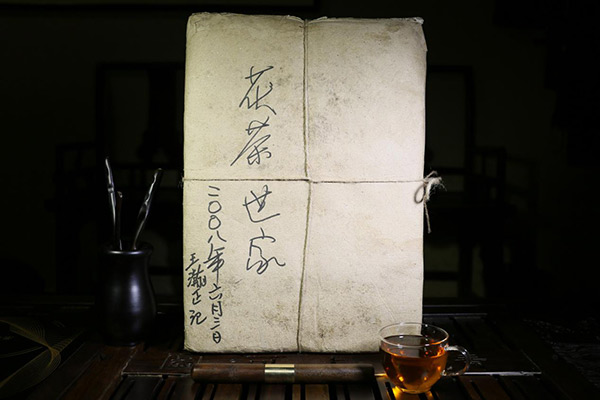 茯茶世家
二〇〇八年六月三日
王正记